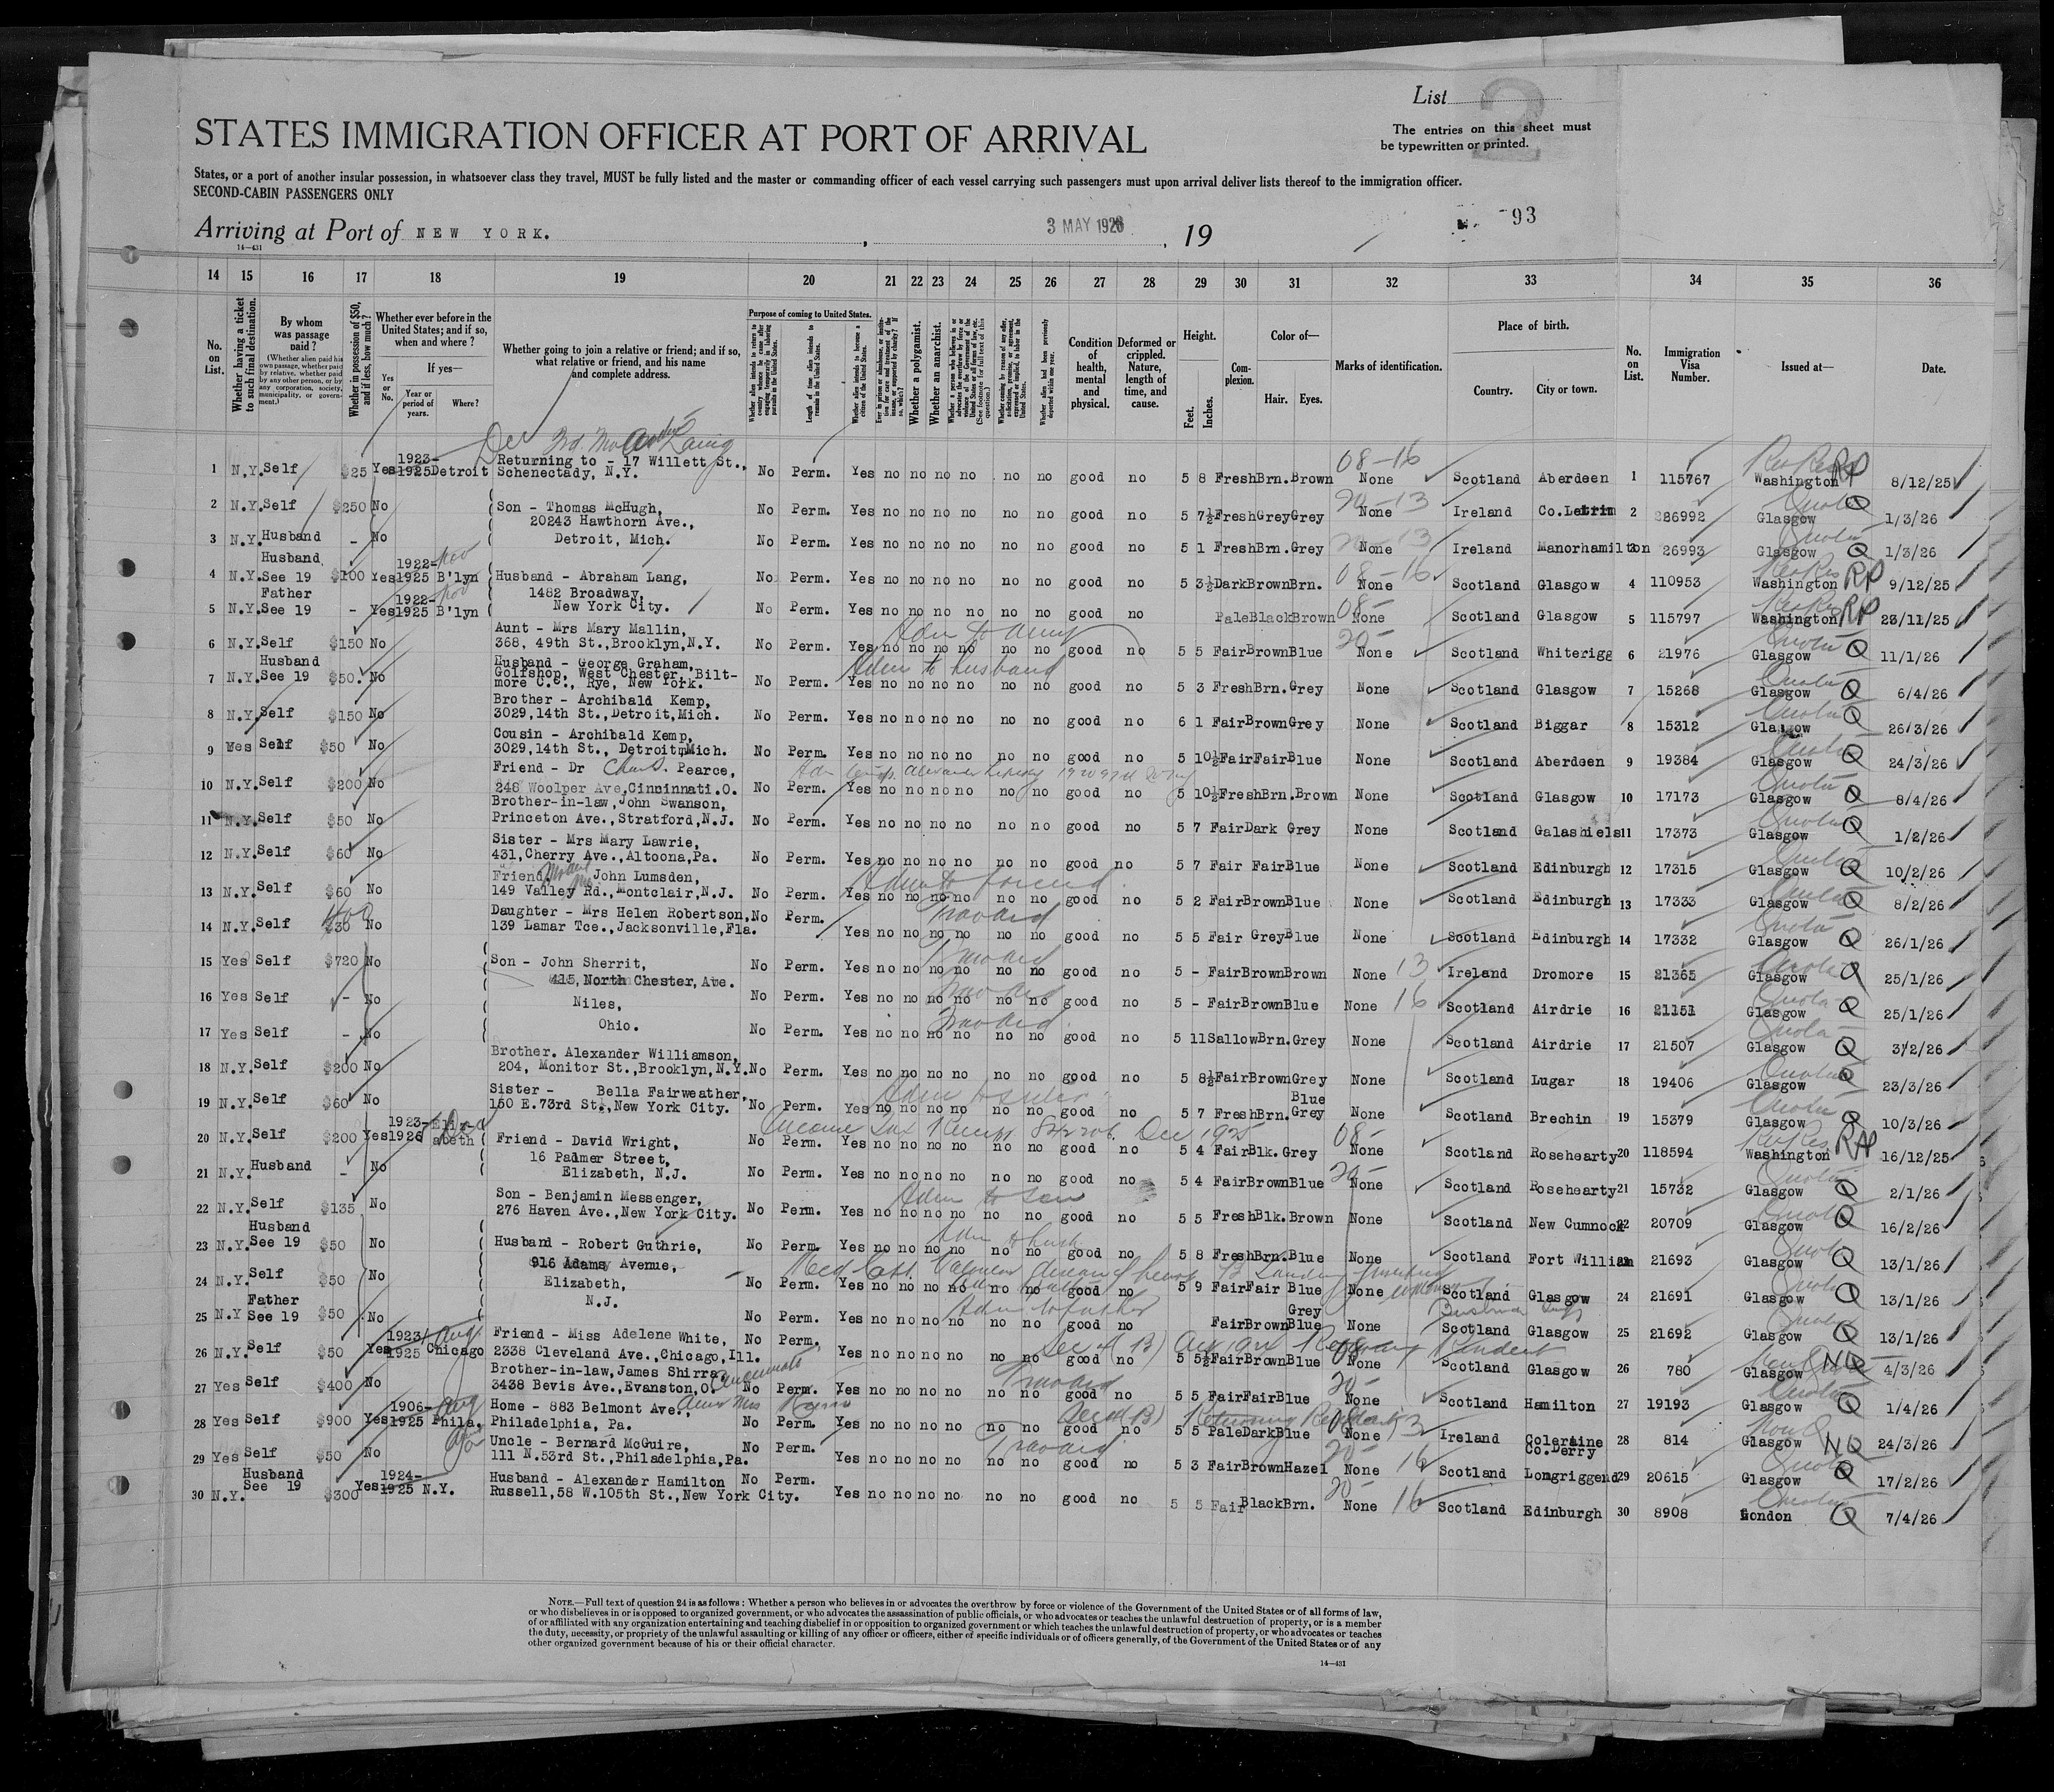 List
2
The entries on this sheet must
be typewritten or printed.
STATES IMMIGRATION OFFICER AT PORT OF ARRIVAL
States, or a port of another insular possession, in whatsoever class they travel, MUST be fully listed and the master or commanding officer of each vessel carrying such passengers must upon arrival deliver lists thereof to the immigration officer.
SECOND-CABIN PASSENGERS ONLY
93
Arriving at Port of NEW YORK. , 3 MAY 1926 , 19
14-431
14 15 16 17 18 19 20 21 22 23 24 25 26 27 28 29 30 31 32 33 34 35 36
No. on List.
Whether having a ticket to such final destination.
By whom was passage paid?
(Whether alien paid his own passage, whether paid by relative, whether paid by any other person, or by any corporation, society, municipality, or government.)
Whether in possession of $50, and if less, how much?
Whether ever before in the United States; and if so, when and where?
If yes—
Yes or No.
Year or period of years.
Where?
Whether going to join a relative or friend; and if so, what relative or friend, and his name and complete address.
Purpose of coming to United States.
Length of time alien intends to remain in the United States.
Whether alien intends to become a citizen of the United States.
Whether a polygamist.
Whether an anarchist.
Condition of health, mental and physical.
Deformed or crippled. Nature, length of time, and cause.
Height.
Feet. Inches.
Complexion.
Color of—
Hair. Eyes.
Marks of identification.
Place of birth.
Country. City or town.
No. on List.
Immigration Visa Number.
Issued at—
Date.
1 N.Y. Self $25 Yes 1923-1925 Detroit Returning to - 17 Willett St., Schenectady, N.Y. No Perm. Yes no no no no no no good no 5 8 Fresh Brn. Brown None 08-16 Scotland Aberdeen 1 115767 Washington RP 8/12/25
2 N.Y. Self $250 No Son - Thomas McHugh, 20243 Hawthorn Ave., No Perm. Yes no no no no no no good no 5 7½ Fresh Grey Grey None Ireland Co. Leitrim 2 26992 Quota Glasgow Q 1/3/26
3 N.Y. Husband - No Detroit, Mich. No Perm. Yes no no no no no no good no 5 1 Fresh Brn. Grey None Ireland Manorhamilton 3 26993 Quota Glasgow Q 1/3/26
4 N.Y. Husband, See 19 $100 Yes 1922-1925 B'lyn Husband - Abraham Lang, 1482 Broadway, No Perm. Yes no no no no no no good no 5 3½ Dark Brown Brn. None 08-16 Scotland Glasgow 4 110953 Washington RP 9/12/25
5 N.Y. Father See 19 - Yes 1922-1925 B'lyn New York City. No Perm. Yes no no no no no no good no Pale Black Brown None 08- Scotland Glasgow 5 115797 Washington RP 23/11/25
6 N.Y. Self $150 No Aunt - Mrs Mary Mallin, 368, 49th St., Brooklyn, N.Y. No Perm. Yes no no no no no no good no 5 5 Fair Brown Blue None 20- Scotland Whiterigg 6 21976 Quota Glasgow Q 11/1/26
Adm to Aunt
7 N.Y. Husband See 19 $50. No Husband - George Graham, Golfshop, West Chester, Biltmore C.C., Rye, New York. No Perm. Yes no no no no no no good no 5 3 Fresh Brn. Grey None Scotland Glasgow 7 15268 Quota Glasgow Q 6/4/26
Adm to husband
8 N.Y. Self $150 No Brother - Archibald Kemp, 3029,14th St., Detroit, Mich. No Perm. Yes no no no no no no good no 6 1 Fair Brown Grey None Scotland Biggar 8 15312 Quota Glasgow Q 26/3/26
9 Yes Self $50 No Cousin - Archibald Kemp, 3029,14th St., Detroit, Mich. No Perm. Yes no no no no no no good no 5 10½ Fair Fair Blue None Scotland Aberdeen 9 19384 Quota Glasgow Q 24/3/26
10 N.Y. Self $200 No Friend - Dr Chas. Pearce, 248 Woolper Ave, Cincinnati. O. No Perm. Yes no no no no no no good no 5 10½ Fresh Brn. Brown None Scotland Glasgow 10 17173 Quota Glasgow Q 8/4/26
11 N.Y. Self $50 No Brother-in-law, John Swanson, Princeton Ave., Stratford, N.J. No Perm. Yes no no no no no no good no 5 7 Fair Dark Grey None Scotland Galashiels 11 17373 Quota Glasgow Q 1/2/26
12 N.Y. Self $60 No Sister - Mrs Mary Lawrie, 431, Cherry Ave., Altoona, Pa. No Perm. Yes no no no no no no good no 5 7 Fair Fair Blue None Scotland Edinburgh 12 17315 Quota Glasgow Q 10/2/26
13 N.Y. Self $60 No Friend John Lumsden, 149 Valley Rd., Montclair, N.J. No Perm. Yes no no no no no no good no 5 2 Fair Brown Blue None Scotland Edinburgh 13 17333 Quota Glasgow Q 8/2/26
Adm to friend
14 N.Y. Self $30 No Daughter - Mrs Helen Robertson, 139 Lamar Tce., Jacksonville, Fla. No Perm. Yes no no no no no no good no 5 5 Fair Grey Blue None Scotland Edinburgh 14 17332 Quota Glasgow Q 26/1/26
Trav aid
15 Yes Self $720 No Son - John Sherrit, 415, North Chester, Ave. No Perm. Yes no no no no no no good no 5 - Fair Brown Brown None 13 Ireland Dromore 15 21365 Quota Glasgow Q 25/1/26
Trav aid
16 Yes Self - No Niles, No Perm. Yes no no no no no no good no 5 - Fair Brown Blue None 16 Scotland Airdrie 16 21151 Quota Glasgow Q 25/1/26
Trav aid
17 Yes Self - No Ohio. No Perm. Yes no no no no no no good no 5 11 Sallow Brn. Grey None Scotland Airdrie 17 21507 Quota Glasgow Q 3/2/26
Trav aid
18 N.Y. Self $200 No Brother. Alexander Williamson, 204, Monitor St., Brooklyn, N.Y. No Perm. Yes no no no no no no good no 5 8½ Fair Brown Grey None Scotland Lugar 18 19406 Quota Glasgow Q 23/3/26
19 N.Y. Self $60 No Sister - Bella Fairweather, 150 E.73rd St., New York City. No Perm. Yes no no no no no no good no 5 7 Fresh Brn. Blue Grey None Scotland Brechin 19 15379 Quota Glasgow Q 10/3/26
Adm to sister
20 N.Y. Self $200 Yes 1923-1926 Elizabeth Friend - David Wright, 16 Palmer Street, No Perm. Yes no no no no no no good no 5 4 Fair Blk. Grey None 08- Scotland Rosehearty 20 118594 Washington RP 16/12/25
21 N.Y. Husband - No Elizabeth, N.J. No Perm. Yes no no no no no no good no 5 4 Fair Brown Blue None 20- Scotland Rosehearty 21 15732 Quota Glasgow Q 2/1/26
22 N.Y. Self $135 No Son - Benjamin Messenger, 276 Haven Ave., New York City. No Perm. Yes no no no no no no good no 5 5 Fresh Blk. Brown None Scotland New Cumnock 22 20709 Quota Glasgow Q 16/2/26
Adm to son
23 N.Y. Husband See 19 $50 No Husband - Robert Guthrie, 916 Adams Avenue, No Perm. Yes no no no no no no good no 5 8 Fresh Brn. Blue None Scotland Fort William 23 21693 Quota Glasgow Q 13/1/26
Adm to husb
24 N.Y. Self $50 No Elizabeth, No Perm. Yes no no no no no no good no 5 9 Fair Fair Blue None Scotland Glasgow 24 21691 Quota Glasgow Q 13/1/26
25 N.Y Father See 19 $50 No N.J. No Perm. Yes no no no no no no good no Fair Brown Grey Blue None Scotland Glasgow 25 21692 Quota Glasgow Q 13/1/26
Adm to father
26 N.Y. Self $50 Yes 1923/1925 Chicago Friend - Miss Adelene White, 2338 Cleveland Ave., Chicago, Ill. No Perm. Yes no no no no no no good no 5 5½ Fair Brown Blue None 08 Scotland Glasgow 26 780 Glasgow NQ 4/3/26
27 Yes Self $400 No Brother-in-law, James Shirra, 3438 Bevis Ave., Evanston, O. Cincinnati No Perm. Yes no no no no no no good no 5 5 Fair Fair Blue None 20- Scotland Hamilton 27 19193 Quota Glasgow Q 1/4/26
Trav aid
28 Yes Self $900 Yes 1906-1925 Phila. Home - 883 Belmont Ave., Philadelphia, Pa. No Perm. Yes no no no no no no good no 5 5 Pale Dark Blue None Ireland Coleraine Co. Derry 28 814 Glasgow NQ 24/3/26
29 Yes Self $50 No Uncle - Bernard McGuire, 111 N.53rd St., Philadelphia, Pa. No Perm. Yes no no no no no no good no 5 3 Fair Brown Hazel None 16 Scotland Longriggend 29 20615 Quota Glasgow Q 17/2/26
Trav aid
30 N.Y. Husband See 19 $300 Yes 1924-1925 N.Y. Husband - Alexander Hamilton Russell, 58 W.105th St., New York City. No Perm. Yes no no no no no no good no 5 5 Fair Black Brn. None 16 Scotland Edinburgh 30 8908 Quota London Q 7/4/26
NOTE.—Full text of question 24 is as follows: Whether a person who believes in or advocates the overthrow by force or violence of the Government of the United States or of all forms of law,
or who disbelieves in or is opposed to organized government, or who advocates the assassination of public officials, or who advocates or teaches the unlawful destruction of property, or is a member
of or affiliated with any organization entertaining and teaching disbelief in or opposition to organized government or which teaches the unlawful destruction of property, or who advocates or teaches
the duty, necessity, or propriety of the unlawful assaulting or killing of any officer or officers, either of specific individuals or of officers generally, of the Government of the United States or of any
other organized government because of his or their official character.
14-431